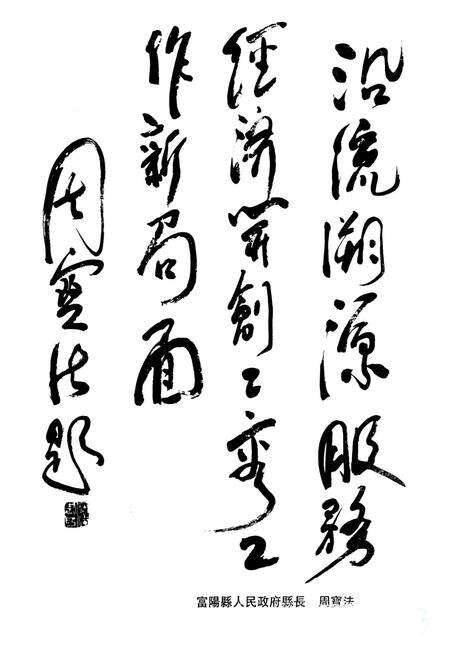 沿流溯源服務
經濟開創工商工
作新局面
周寶法題
富陽縣人民政府縣長 周寶法